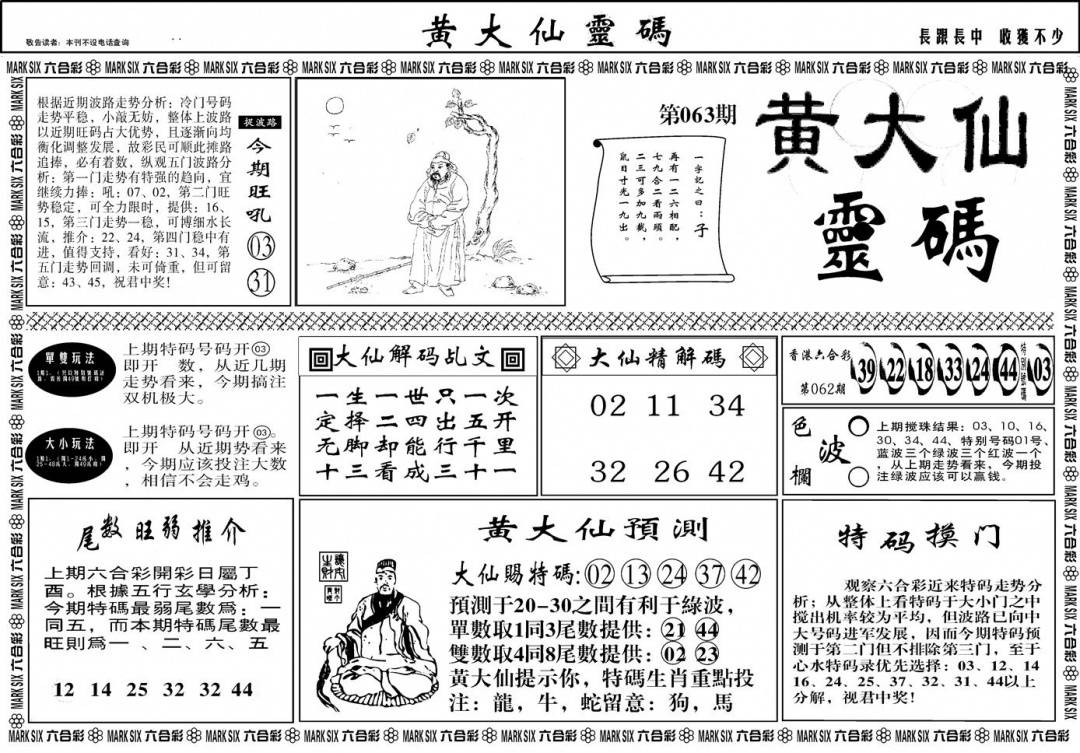 敬告读者：本刊不设电话查询
黄大仙靈碼
長跟長中 收獲不少
MARK SIX 六合彩 MARK SIX 六合彩 MARK SIX 六合彩 MARK SIX 六合彩 MARK SIX 六合彩 MARK SIX 六合彩 MARK SIX 六合彩 MARK SIX 六合彩 MARK SIX 六合彩 MARK SIX 六合彩 MARK SIX 六合彩
根据近期波路走势分析：冷门号码
走势平稳，小敲无妨，整体上波路
以近期旺码占大优势，且逐渐向均
衡化调整发展，故彩民可顺此摊路
追捧，必有着数，纵观五门波路分
析：第一门走势有特强的趋向，宜
继续力捧：吼：07、02，第二门旺
势稳定，可全力限时，提供：16、
15，第三门走势一稳，可博细水长
流，推介：22、24，第四门稳中有
进，值得支持，看好：31、34，第
五门走势回调，未可倚重，但可留
意：43、45，祝君中奖!
捉波路
今期旺吼
03
31
第063期
一字记之曰：子
再有一二六相配，
七九合二看两頭。
二三可多加九载，
鼠目寸光一九出。
黄大仙
靈碼
單雙玩法
上期特码号码开03
即开 数，从近几期
走势看来，今期搞注
双机极大。
大小玩法
上期特码号码开03。
即开 从近期势看来
，今期应该投注大数
，相信不会走鸡。
大仙解码乩文
一生一世只一次
定择二四出五开
无脚却能行千里
十三看成三十一
大仙精解碼
02 11 34
32 26 42
香港六合彩
第062期
39 22 18 33 24 44
特别號碼
03
色波欄
上期搅珠结果：03、10、16、
30、34、44、特别号码01号、
蓝波三个绿波三个红波一个
，从上期走势看来，今期投
注绿波应该可以赢钱。
尾数旺弱推介
上期六合彩開彩日屬丁
酉。根據五行玄學分析：
今期特碼最弱尾數爲：一
同五，而本期特碼尾數最
旺則爲一 、二、六、五
12 14 25 32 32 44
黄大仙預測
大仙賜特碼:02 13 24 37 42
預測于20-30之間有利于綠波，
單數取1同3尾數提供：21 44
雙數取4同8尾數提供：02 23
黄大仙提示你，特碼生肖重點投
注：龍，牛，蛇留意：狗，馬
特码摸门
观察六合彩近来特码走势分
析；从整体上看特码于大小门之中
搅出机率较为平均，但波路已向中
大号码进军发展，因而今期特码预
测于第二门但不排除第三门，至于
心水特码录优先选择：03、12、14
16、24、25、37、32、31、44以上
分解，视君中奖!
MARK SIX 六合彩 MARK SIX 六合彩 MARK SIX 六合彩 MARK SIX 六合彩 MARK SIX 六合彩 MARK SIX 六合彩 MARK SIX 六合彩 MARK SIX 六合彩 MARK SIX 六合彩 MARK SIX 六合彩 MARK SIX 六合彩